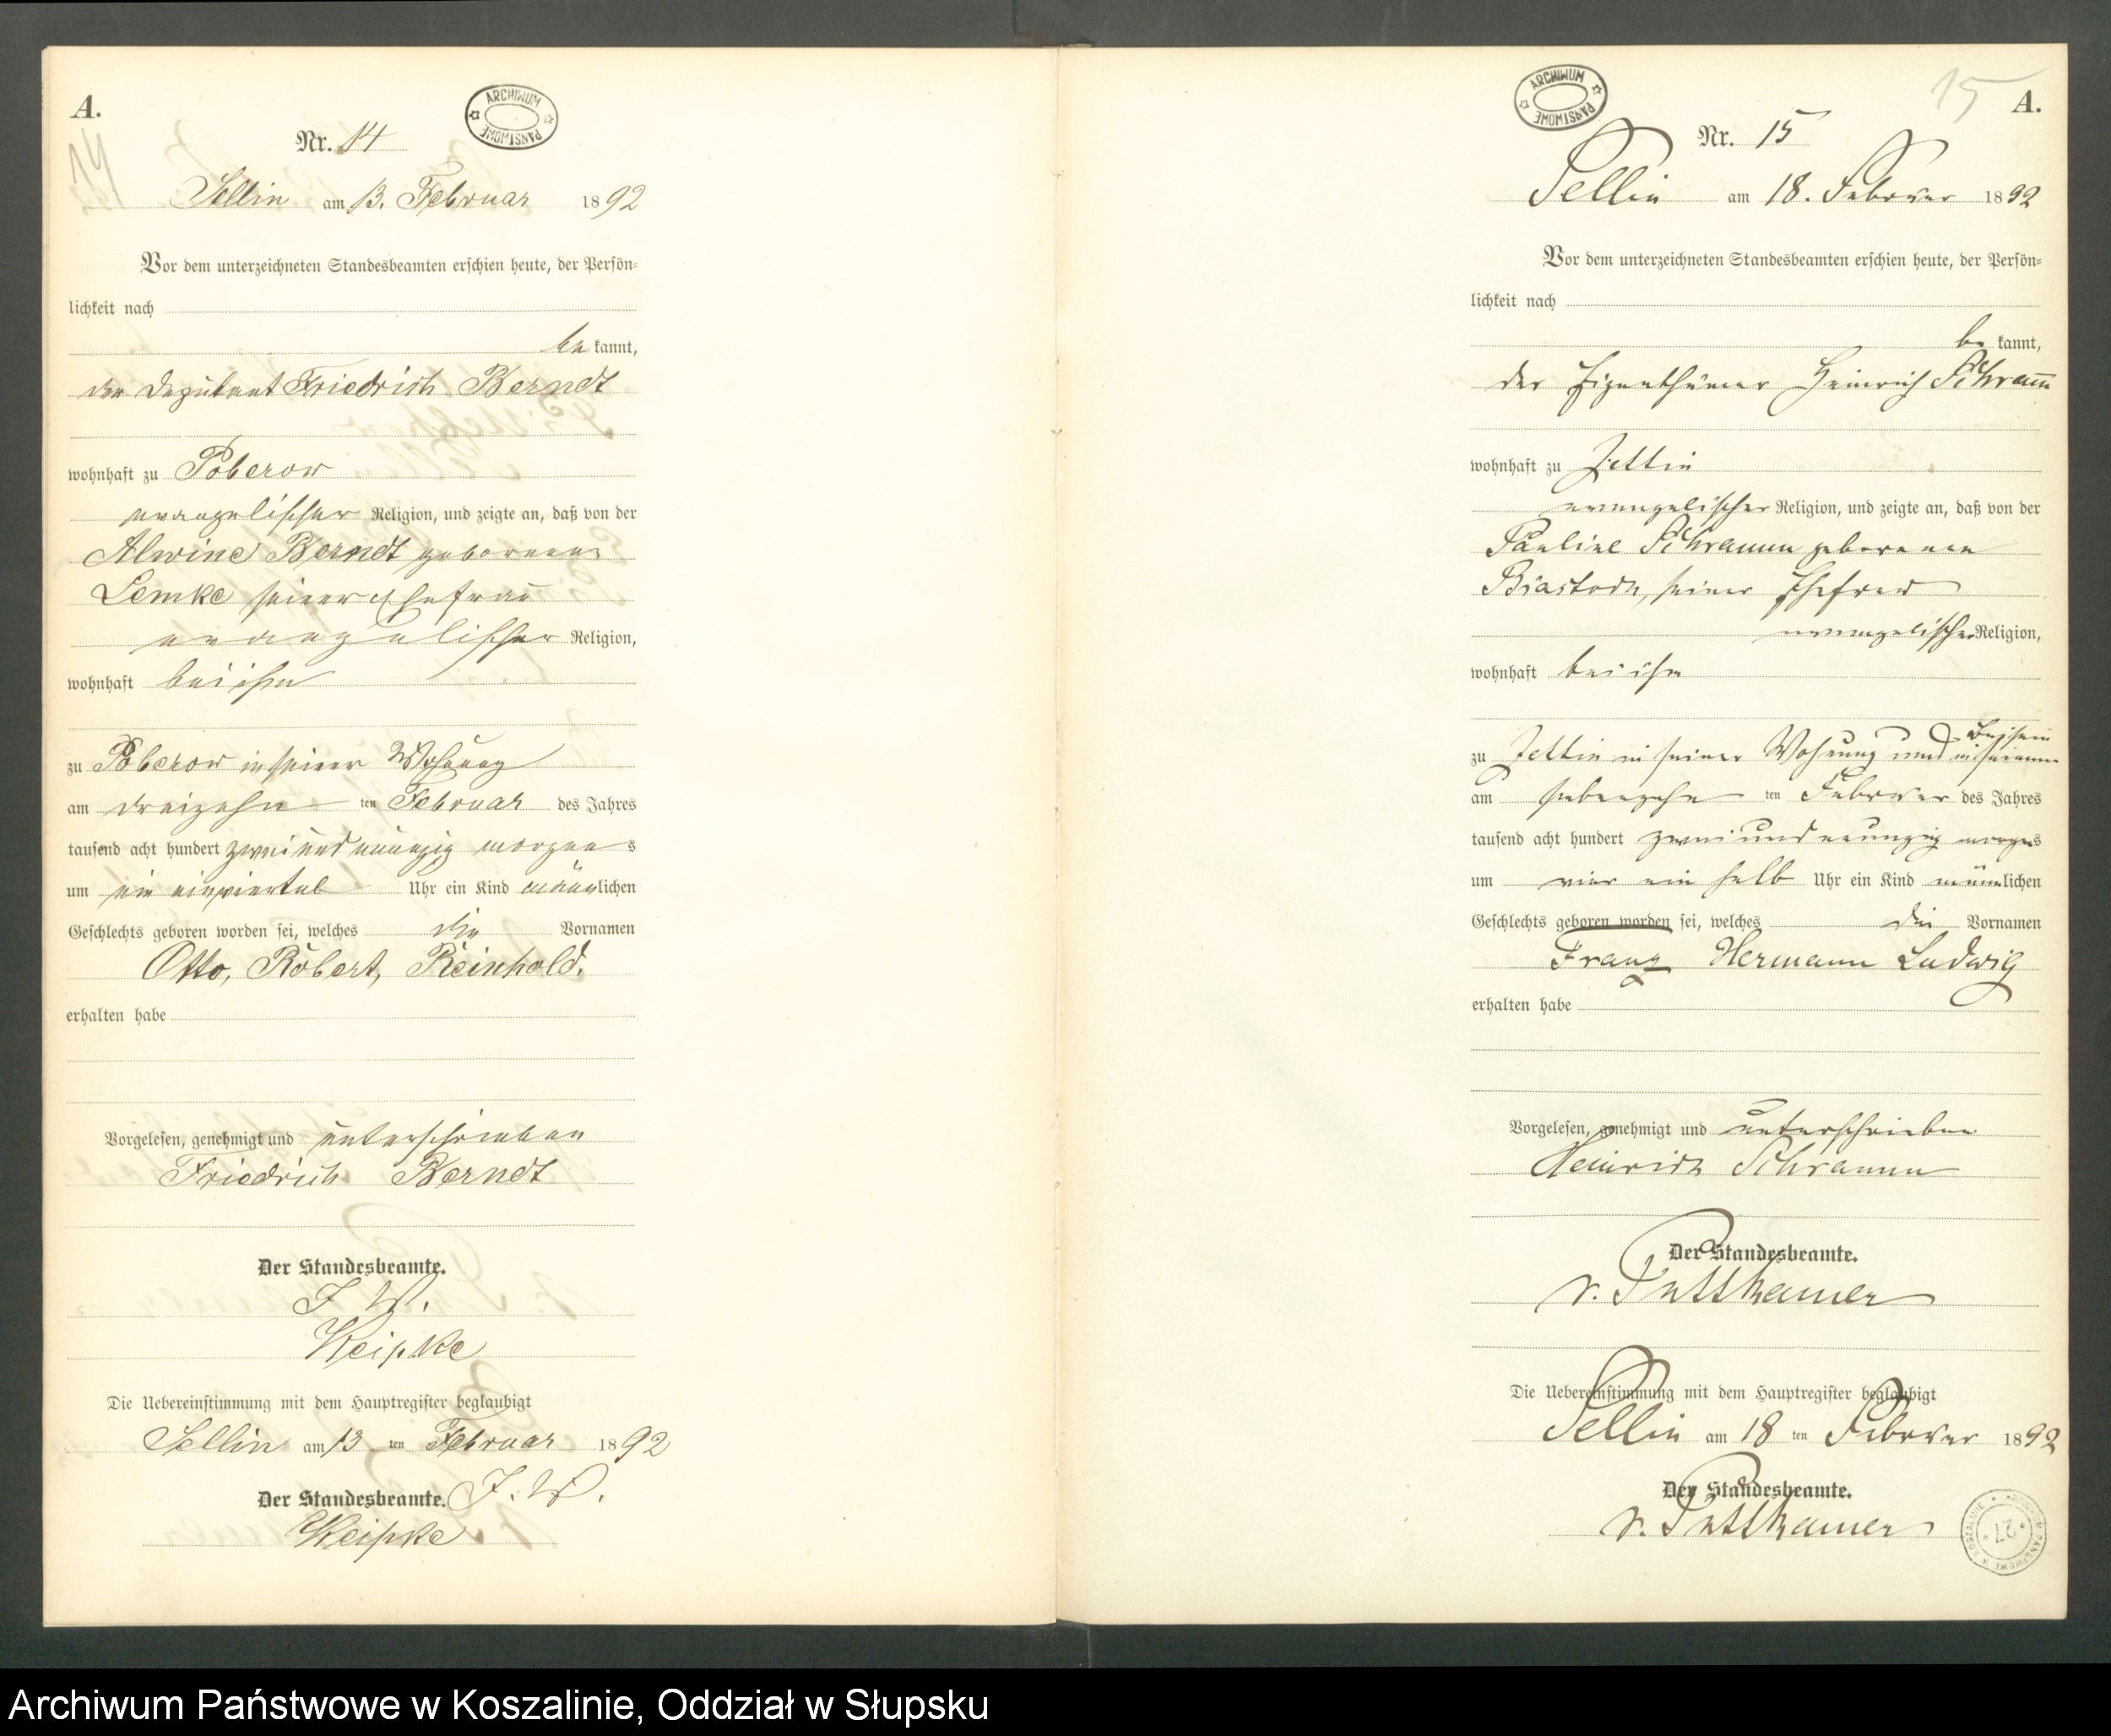 A.
14
ARCHIWUM PAŃSTWOWE
Nr. 14
Sellin am 13. Februar 1892
Vor dem unterzeichneten Standesbeamten erschien heute, der Persön-
lichkeit nach
be kannt,
der Deputant Friedrich Berndt
wohnhaft zu Poberow
evangelischer Religion, und zeigte an, daß von der
Alwine Berndt geborenen
Lemke seiner Ehefrau
evangelischer Religion,
wohnhaft bei ihm
zu Poberow in seiner Wohnung
am dreizehn ten Februar des Jahres
tausend acht hundert zwei und neunzig morgens
um ein einviertel Uhr ein Kind männlichen
Geschlechts geboren worden sei, welches die Vornamen
Otto, Robert, Reinhold.
erhalten habe
Vorgelesen, genehmigt und unterschrieben
Friedrich Berndt
Der Standesbeamte.
J. W.
Die Uebereinstimmung mit dem Hauptregister beglaubigt
Sellin am 13 ten Februar 1892
Der Standesbeamte. J. W.
15
A.
ARCHIWUM PAŃSTWOWE
Nr. 15
Sellin am 18. Februar 1892
Vor dem unterzeichneten Standesbeamten erschien heute, der Persön-
lichkeit nach
be kannt,
der Eigenthümer Heinrich Schram̅
wohnhaft zu Zettin
evangelischer Religion, und zeigte an, daß von der
Pauline Schramm geborenen
Biastoch, seiner Ehefrau
evangelischer Religion,
wohnhaft bei ihm
zu Zettin in seiner Wohnung und in seinem Beisein
am siebenzehn ten Februar des Jahres
tausend acht hundert zwei und neunzig morgens
um vier ein halb Uhr ein Kind männlichen
Geschlechts geboren worden sei, welches die Vornamen
Franz Hermann Ludwig
erhalten habe
Vorgelesen, genehmigt und unterschrieben
Heinrich Schramm
Der Standesbeamte.
v. Puttkamer
Die Uebereinstimmung mit dem Hauptregister beglaubigt
Sellin am 18 ten Februar 1892
Der Standesbeamte.
v. Puttkamer
Archiwum Państwowe w Koszalinie, Oddział w Słupsku